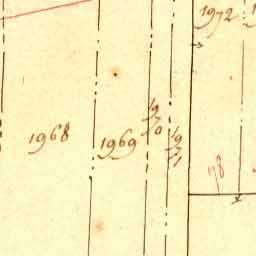 1972
1968
1969
1970
1971
78